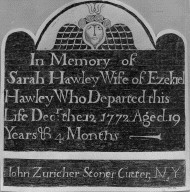 In Memory of
Sarah Hawley Wife of Ezekiel
Hawley Who Departed this
Life Decr the 12, 1772 Aged 19
Years & 4 Months
John Zuricher Stoner Cutter, N, Y